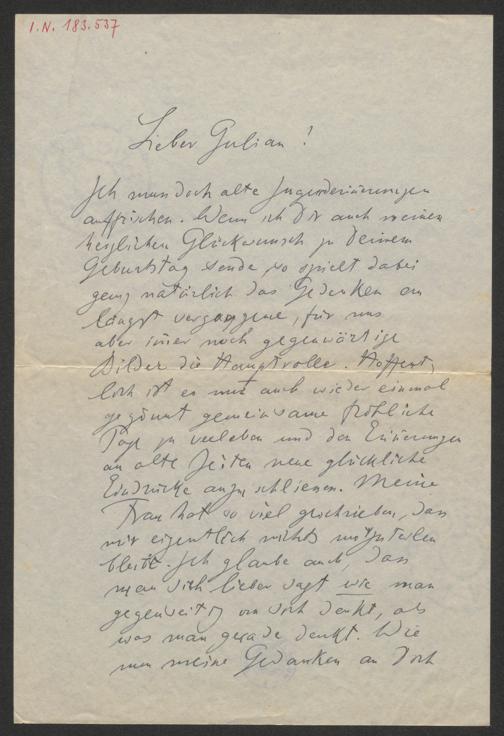 I.N. 183.537
Lieber Julian!
Ich muss doch alte Jugenderinnerungen
auffrischen. Wenn ich Dir auch meinen
herzlichen Glückwunsch zu Deinem
Geburtstag sende so spielt dabei
ganz natürlich das Gedenken an
längst vergangene, für uns
aber immer noch gegenwärtige
Bilder die Hauptrolle. Hoffent-
lich ist es uns auch wieder einmal
gegönnt gemeinsame fröhliche
Tage zu verleben und den Erinnerungen
an alte Zeiten neue glückliche
Eindrücke anzuschliessen. Meine
Frau hat so viel geschrieben, dass
mir eigentlich nichts mitzuteilen
bleibt. Ich glaube auch, dass
man sich lieber sagt wie man
gegenseitig von sich denkt, als
was man gerade denkt. Wie
nun meine Gedanken an Dich